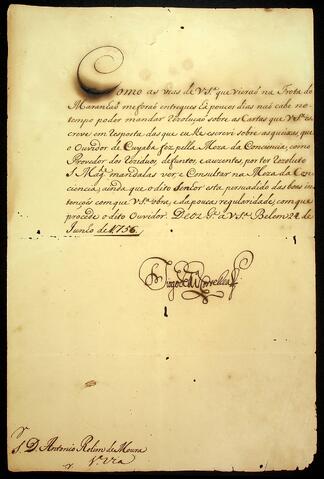 Como as vias de V.S.ª que vieraõ na Frota do
Maranhaõ me foraõ entregues hà poucos dias naõ cabe no
tempo poder mandar rezoluçaõ sobre as Cartas que V.S.ª es
creve em resposta das que eu lhe escrevi sobre as queixas, que
o Ouvidor de Cuyaba fez pella Meza da Conciencia, como
Provedor dos Reziduos, defuntos, e auzentes, por ter rezoluto
S Mag.e mandalas ver e Consultar na Meza da Con
ciencia, ainda que o dito Senhor esta persuadido das boas in
tençoẽs com que V.S.ª obra, e da pouca regularidade, com que
procede o dito Ouvidor. Deos g.e a V.S.ª Belem 24 de
Junho de 1756.
Diogo de M.ça Corte Real
S.r D. Antonio Rolim de Moura
1.ª Via